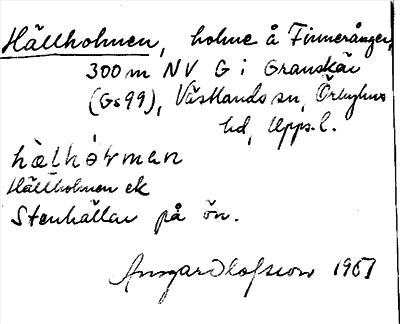 Hällholmen, holme å Finnerånger,
300 m NV G i Granskär
(Gs 99), Västlands sn, Örbyhus
hd, Upps. l.
hälhòrman
Hällholmen ek
Stenhällar på ön.
Ansgar Olofsson 1951